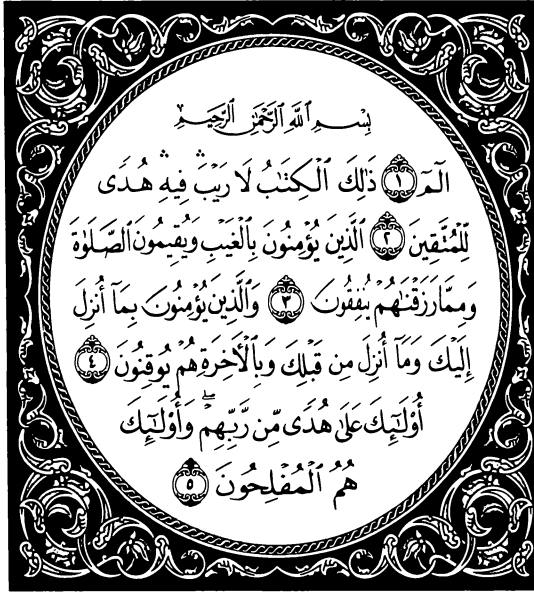 بِسْمِ ٱللَّهِ ٱلرَّحْمَٰنِ ٱلرَّحِيمِ
الٓمٓ ١ ذَٰلِكَ ٱلْكِتَٰبُ لَا رَيْبَ ۛ فِيهِ ۛ هُدًى
لِّلْمُتَّقِينَ ٢ ٱلَّذِينَ يُؤْمِنُونَ بِٱلْغَيْبِ وَيُقِيمُونَ ٱلصَّلَوٰةَ
وَمِمَّا رَزَقْنَٰهُمْ يُنفِقُونَ ٣ وَٱلَّذِينَ يُؤْمِنُونَ بِمَآ أُنزِلَ
إِلَيْكَ وَمَآ أُنزِلَ مِن قَبْلِكَ وَبِٱلْأٓخِرَةِ هُمْ يُوقِنُونَ ٤
أُو۟لَٰٓئِكَ عَلَىٰ هُدًى مِّن رَّبِّهِمْ ۖ وَأُو۟لَٰٓئِكَ
هُمُ ٱلْمُفْلِحُونَ ٥